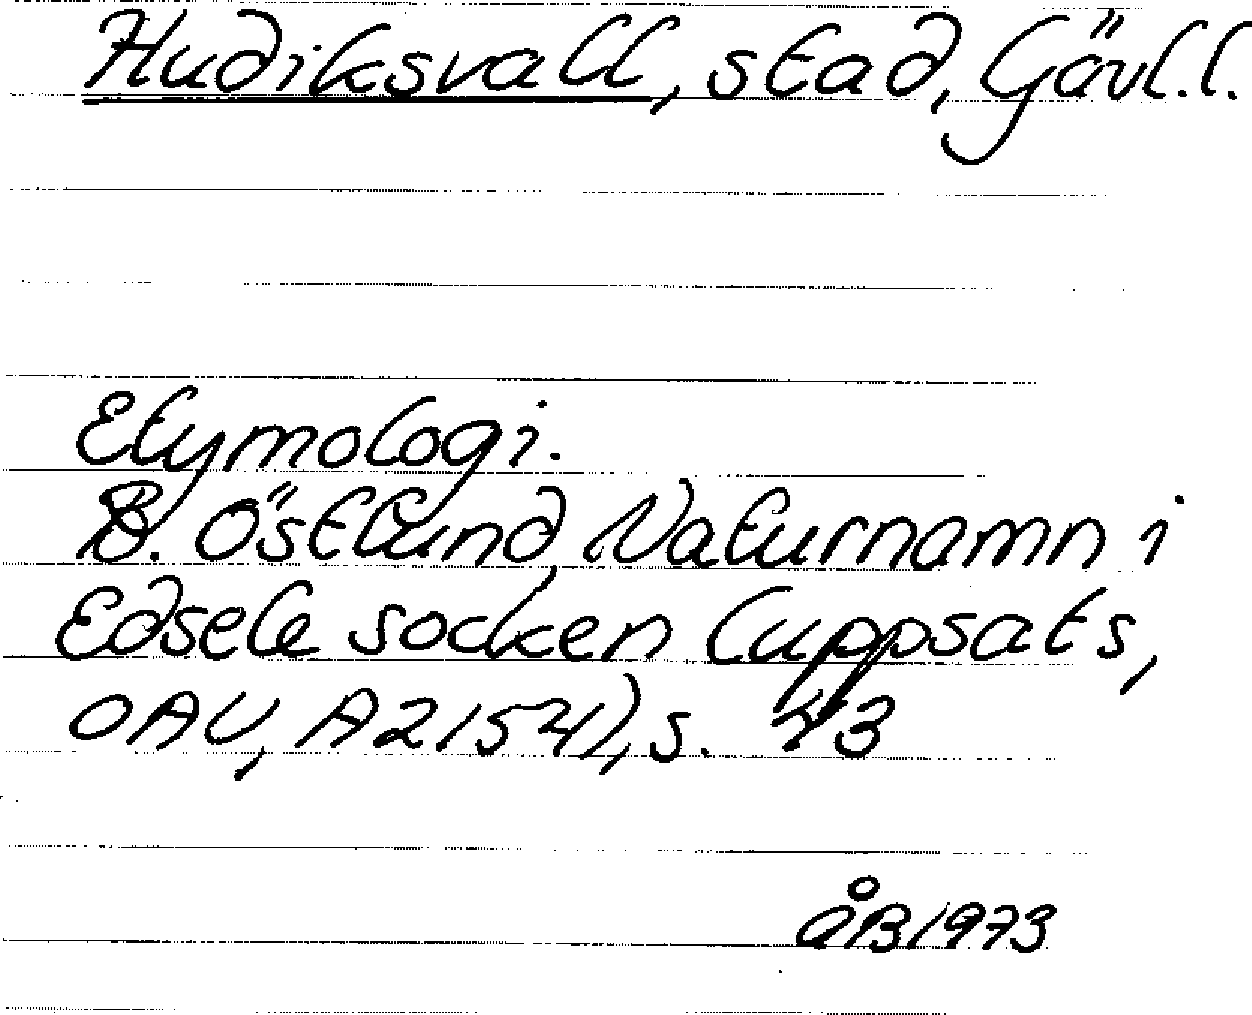 Hudiksvall, stad, Gävl.l.
Etymologi.
B. Östlund, Naturnamn i
Edsele socken (uppsats,
OAU, A2154), s. 43
ÅB 1973